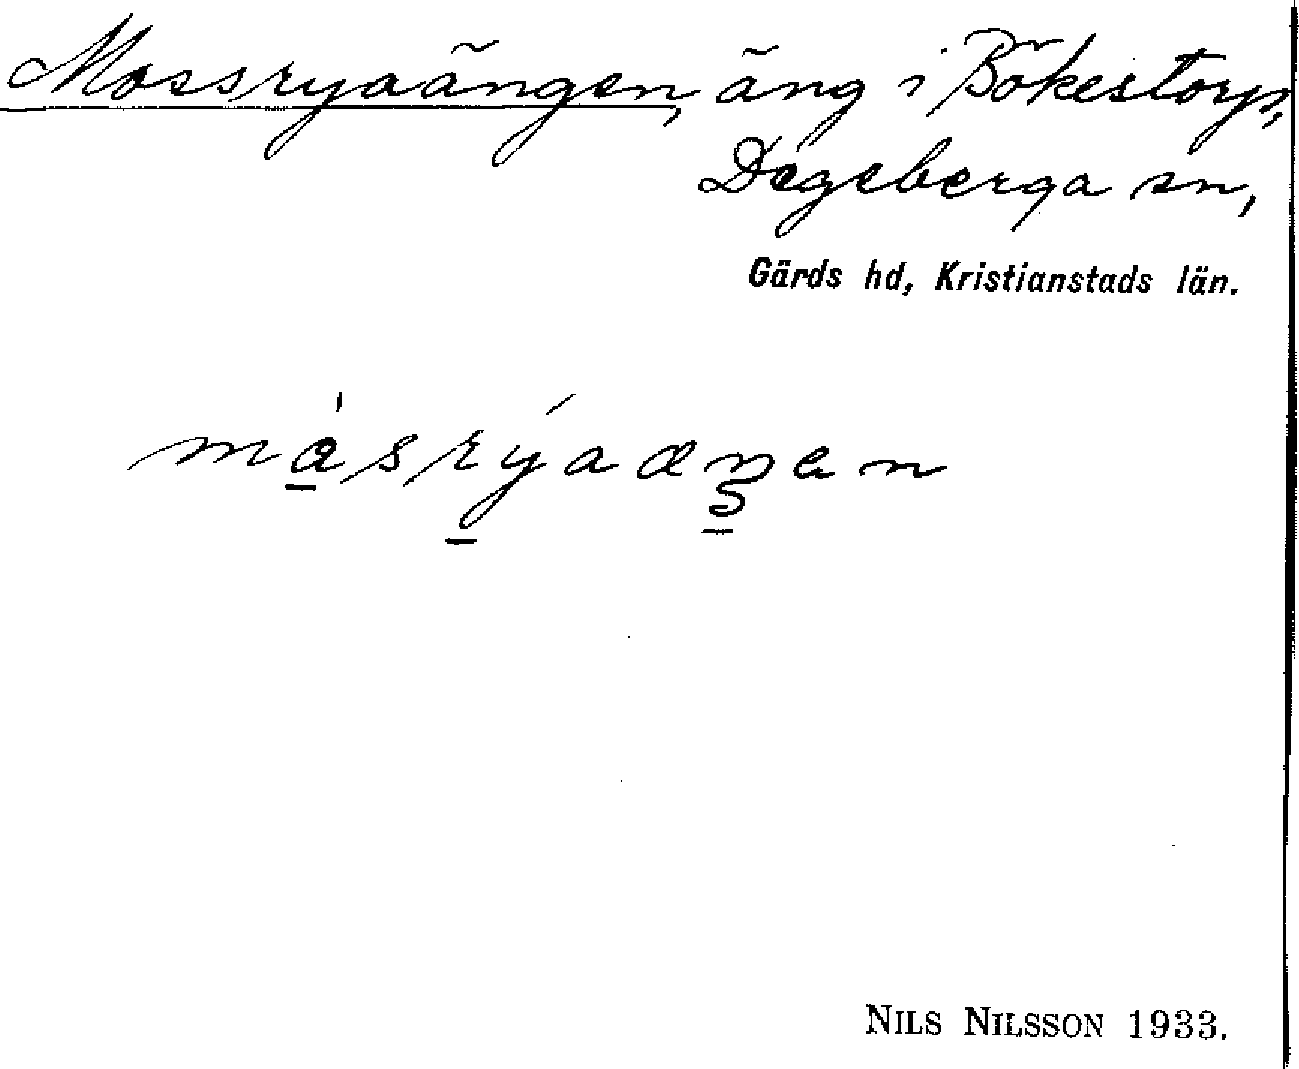 Mossryaängen, äng i Bökestorp,
Degeberga sn,
Gärds hd, Kristianstads län.
måsrýaæŋen
NILS NILSSON 1933.